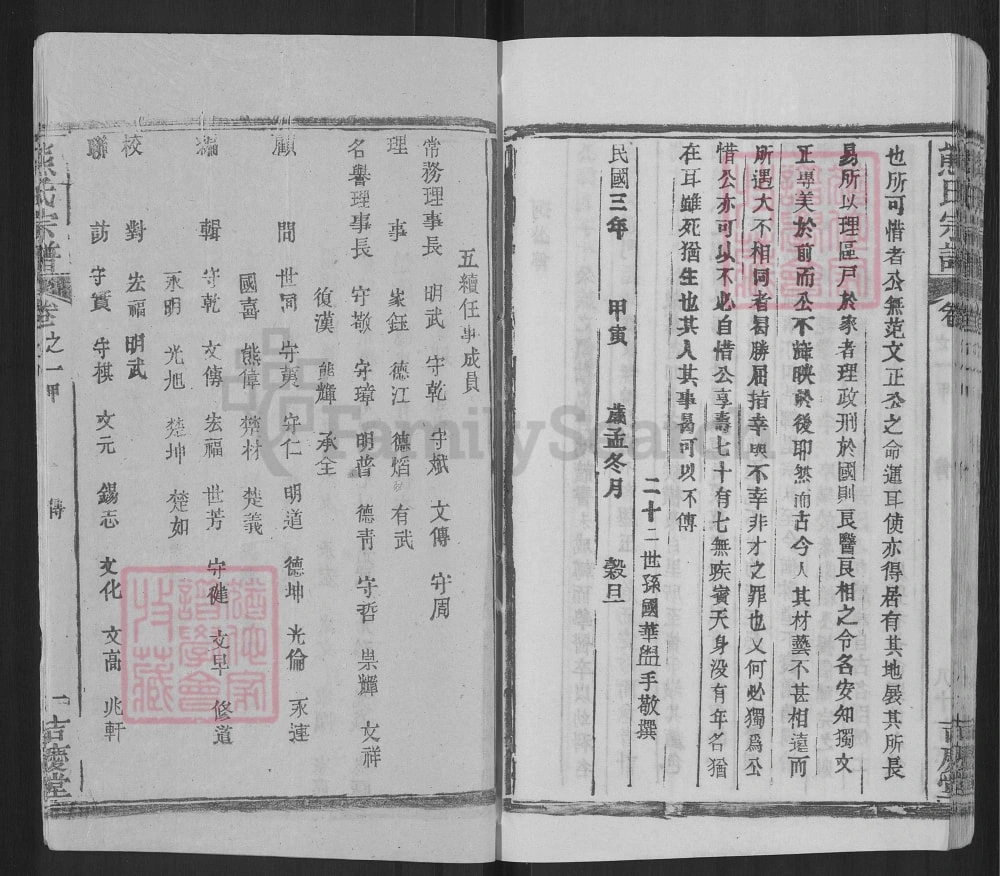 也所可惜者公無范文正公之命運耳使亦得居有其地展其所長
易所以理區戸於家者理政刑於國則良醫良相之令名安知獨文
正專美於前而公不輝映於後耶然而古今人其材藝不甚相遠而
所遇大不相同者曷勝屈指幸與不幸非才之罪也又何必獨爲公
惜公亦可以不必自惜公享壽七十有七無疾實天身没有年名猶
在耳雖死猶生也其人其事曷可以不傳
二十二世孫國華盥手敬撰
民國三年 甲寅 歲孟冬月 穀旦
五續任事成員
常務理事長 明武 守乾 守斌 文傳 守周
理事 家鈺 德江 德焰 有武
名譽理事長 守敬 守璋 明普 德青 守哲 崇輝 文祥
復漢 熊輝 承全
顧問 世同 守夷 守仁 明道 德坤 光倫 永連
國喜 熊偉 楚材 楚義
編輯 守乾 文傳 宏福 世芳 守健 文早 修道
永明 光旭 楚坤 楚如
校對 宏福 明武
聯訪 守賓 守棋 文元 錫志 文化 文高 兆軒
熊氏宗譜 卷之一甲 傳 二 吉慶堂
FamilySearch